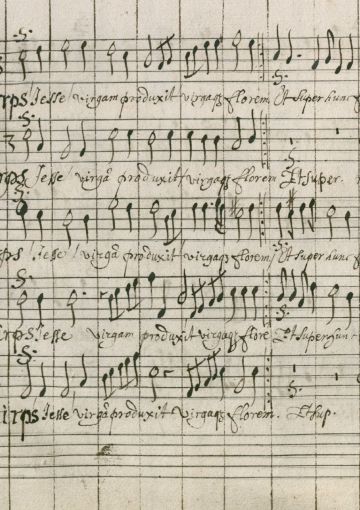 irps Jesse virgam produxit virgaq3 florem Et super hunc
irps Jesse virgā produxit virgaq3 florem Et super.
irps Jesse virgā produxit virgaq3 florem Et super hunc
irps Jesse virgam produxit virgaq3 flore Et super hunc
irps Jesse virgā produxit virgaq3 florem. Et sup.